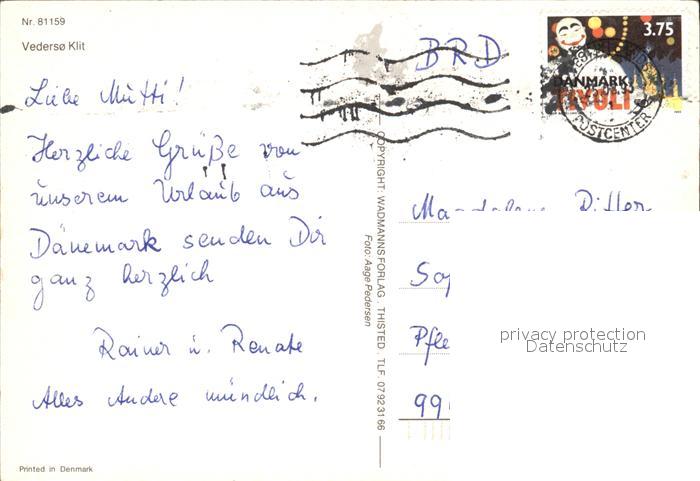 Nr. 81159
Vedersø Klit
BRD
3.75
DANMARK
TIVOLI
POSTCENTER
Liebe Mutti!
Herzliche Grüße von
unserem Urlaub aus
Dänemark senden Dir
ganz herzlich
Rainer u. Renate
Alles Andere mündlich.
COPYRIGHT: WADMANNS FORLAG . THISTED . TLF. 07923166
Foto: Aage Pedersen
99
privacy protection
Datenschutz
Printed in Denmark